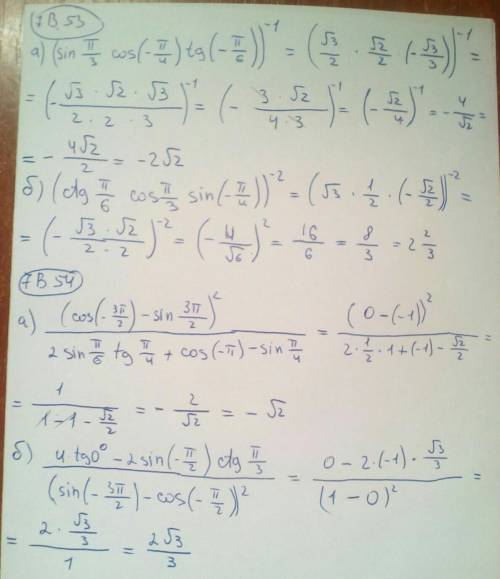 7В53
а) (sin π/3 cos(-π/4) tg(-π/6))^-1 = (√3/2 · √2/2 · (-√3/3))^-1 =
= (- √3 · √2 · √3 / 2 · 2 · 3)^-1 = (- 3 · √2 / 4 · 3)^-1 = (- √2/4)^-1 = - 4/√2 =
= - 4√2/2 = -2√2
б) (ctg π/6 cos π/3 sin(-π/4))^-2 = (√3 · 1/2 · (-√2/2))^-2 =
= (- √3 · √2 / 2 - 2)^-2 = (- 4/√6)^2 = 16/6 = 8/3 = 2 2/3
7В54
а) (cos(-3π/2) - sin 3π/2)^2 / 2 sin π/6 tg π/4 + cos(-π) - sin π/4 = (0 - (-1))^2 / 2 · 1/2 · 1 + (-1) - √2/2 =
= 1 / 1 - 1 - √2/2 = - 2/√2 = - √2
б) 4 · tg0° - 2 sin(-π/2) ctg π/3 / (sin(-3π/2) - cos(-π/2))^2 = 0 - 2 · (-1) · √3/3 / (1 - 0)^2 =
= 2 · √3/3 / 1 = 2√3/3